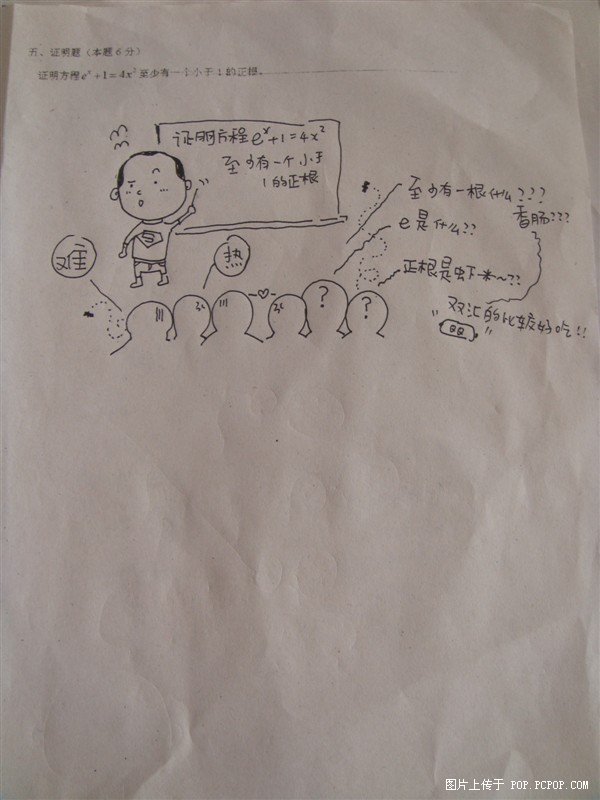 五、证明题（本题6分）
证明方程e^x+1=4x²至少有一个小于1的正根。
证明方程e^x+1=4x²
至少有一个小于
1的正根
至少有一根什么???
香肠???
e是什么??
难
热
正根是虾米~??
"双汇的比较好吃!!
"
? ?
图片上传于 POP.PCPOP.COM